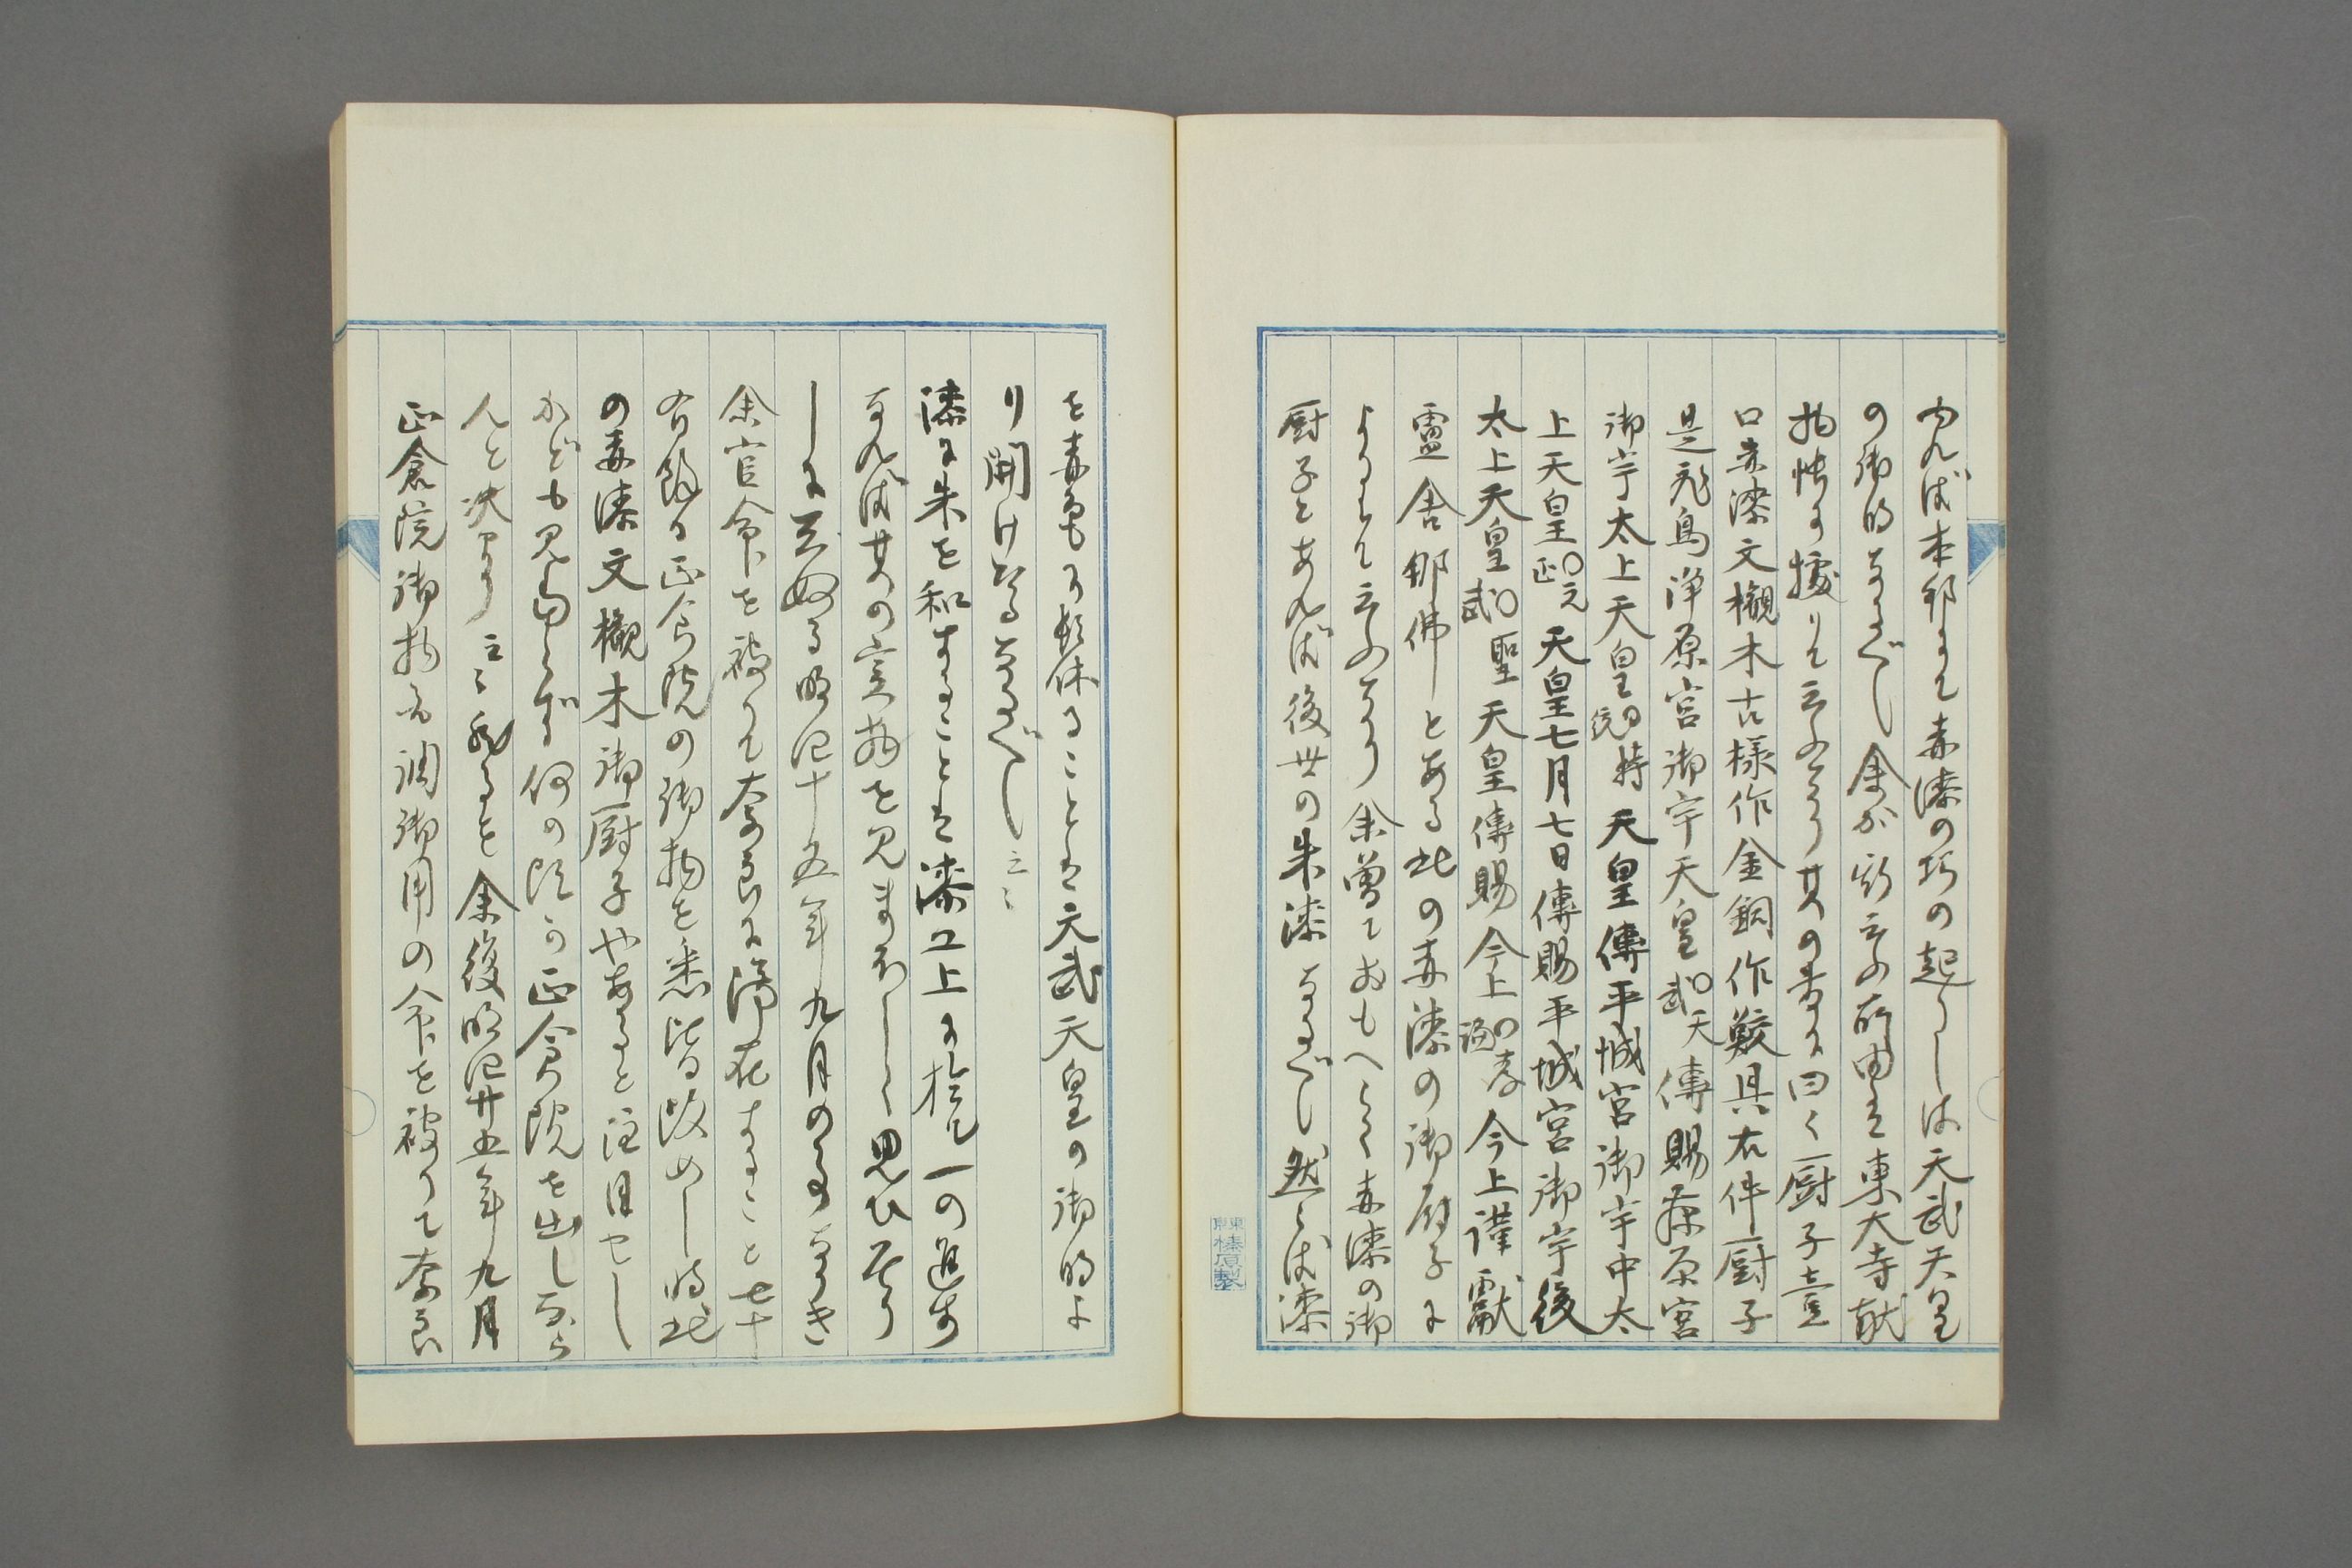 れば本邦にて赤漆の巧の起りしは天武天皇
の御時なるべし余が斯言ふ所由は東大寺献
物帳に據りて言ふなり其の書に曰く厨子壹
口赤漆文槻木古様作金銅作鉸具右件厨子
是飛鳥浄原宮御宇天皇天武傳賜藤原宮
御宇太上天皇持統天皇傳平城宮御宇中太
上天皇元正天皇七月七日傳賜平城宮御宇後
太上天皇聖武天皇傳賜今上孝謙今上謹献
盧舎那佛とある此の赤漆の御厨子に
よりて言ふなり余曽ておもへらく赤漆の御
厨子とあれば後世の朱漆なるべし然らば漆
を赤色に髹ることは天武天皇の御時よ
り開けたるなるべし云々
漆に朱を和することは漆工上に於て一の進歩
なれば其の実物を見まほしく思ひ居り
しに明治十五年九月のことなりき
余官命を被りて奈良に滞在すること七十
有餘日正倉院の御物を悉皆改めし時此
の赤漆文槻木御厨子やあると注目せし
かども見当らず何の頃か正倉院を出しなら
んと決めり云々然るを余後明治廿五年九月
正倉院御物調御用の命を被りて奈良
東京榛原製